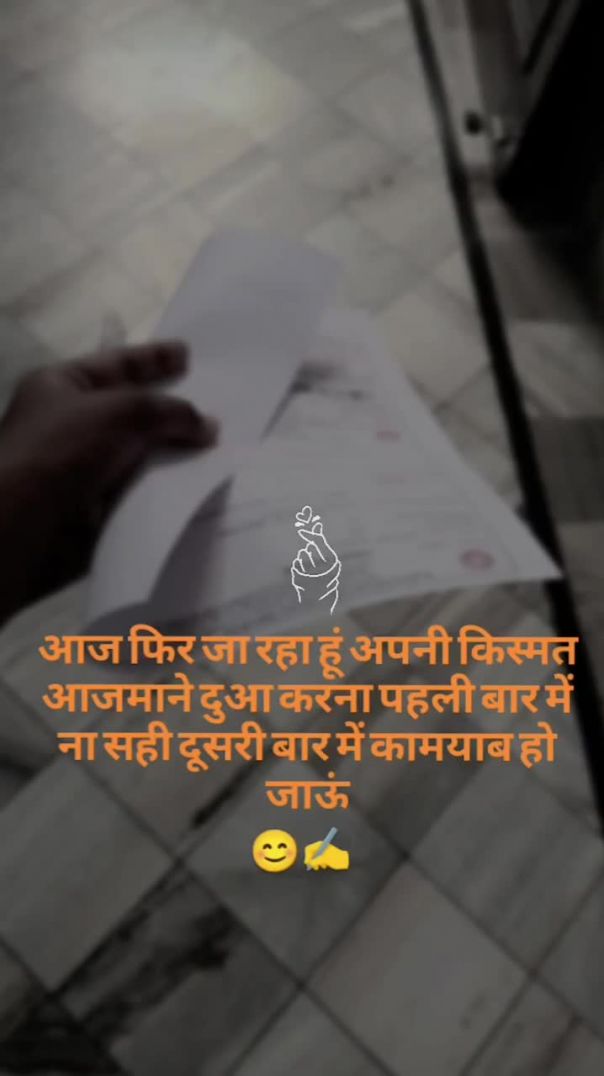 आज फिर जा रहा हूं अपनी किस्मत
आजमाने दुआ करना पहली बार में
ना सही दूसरी बार में कामयाब हो
जाऊं
😊✍️